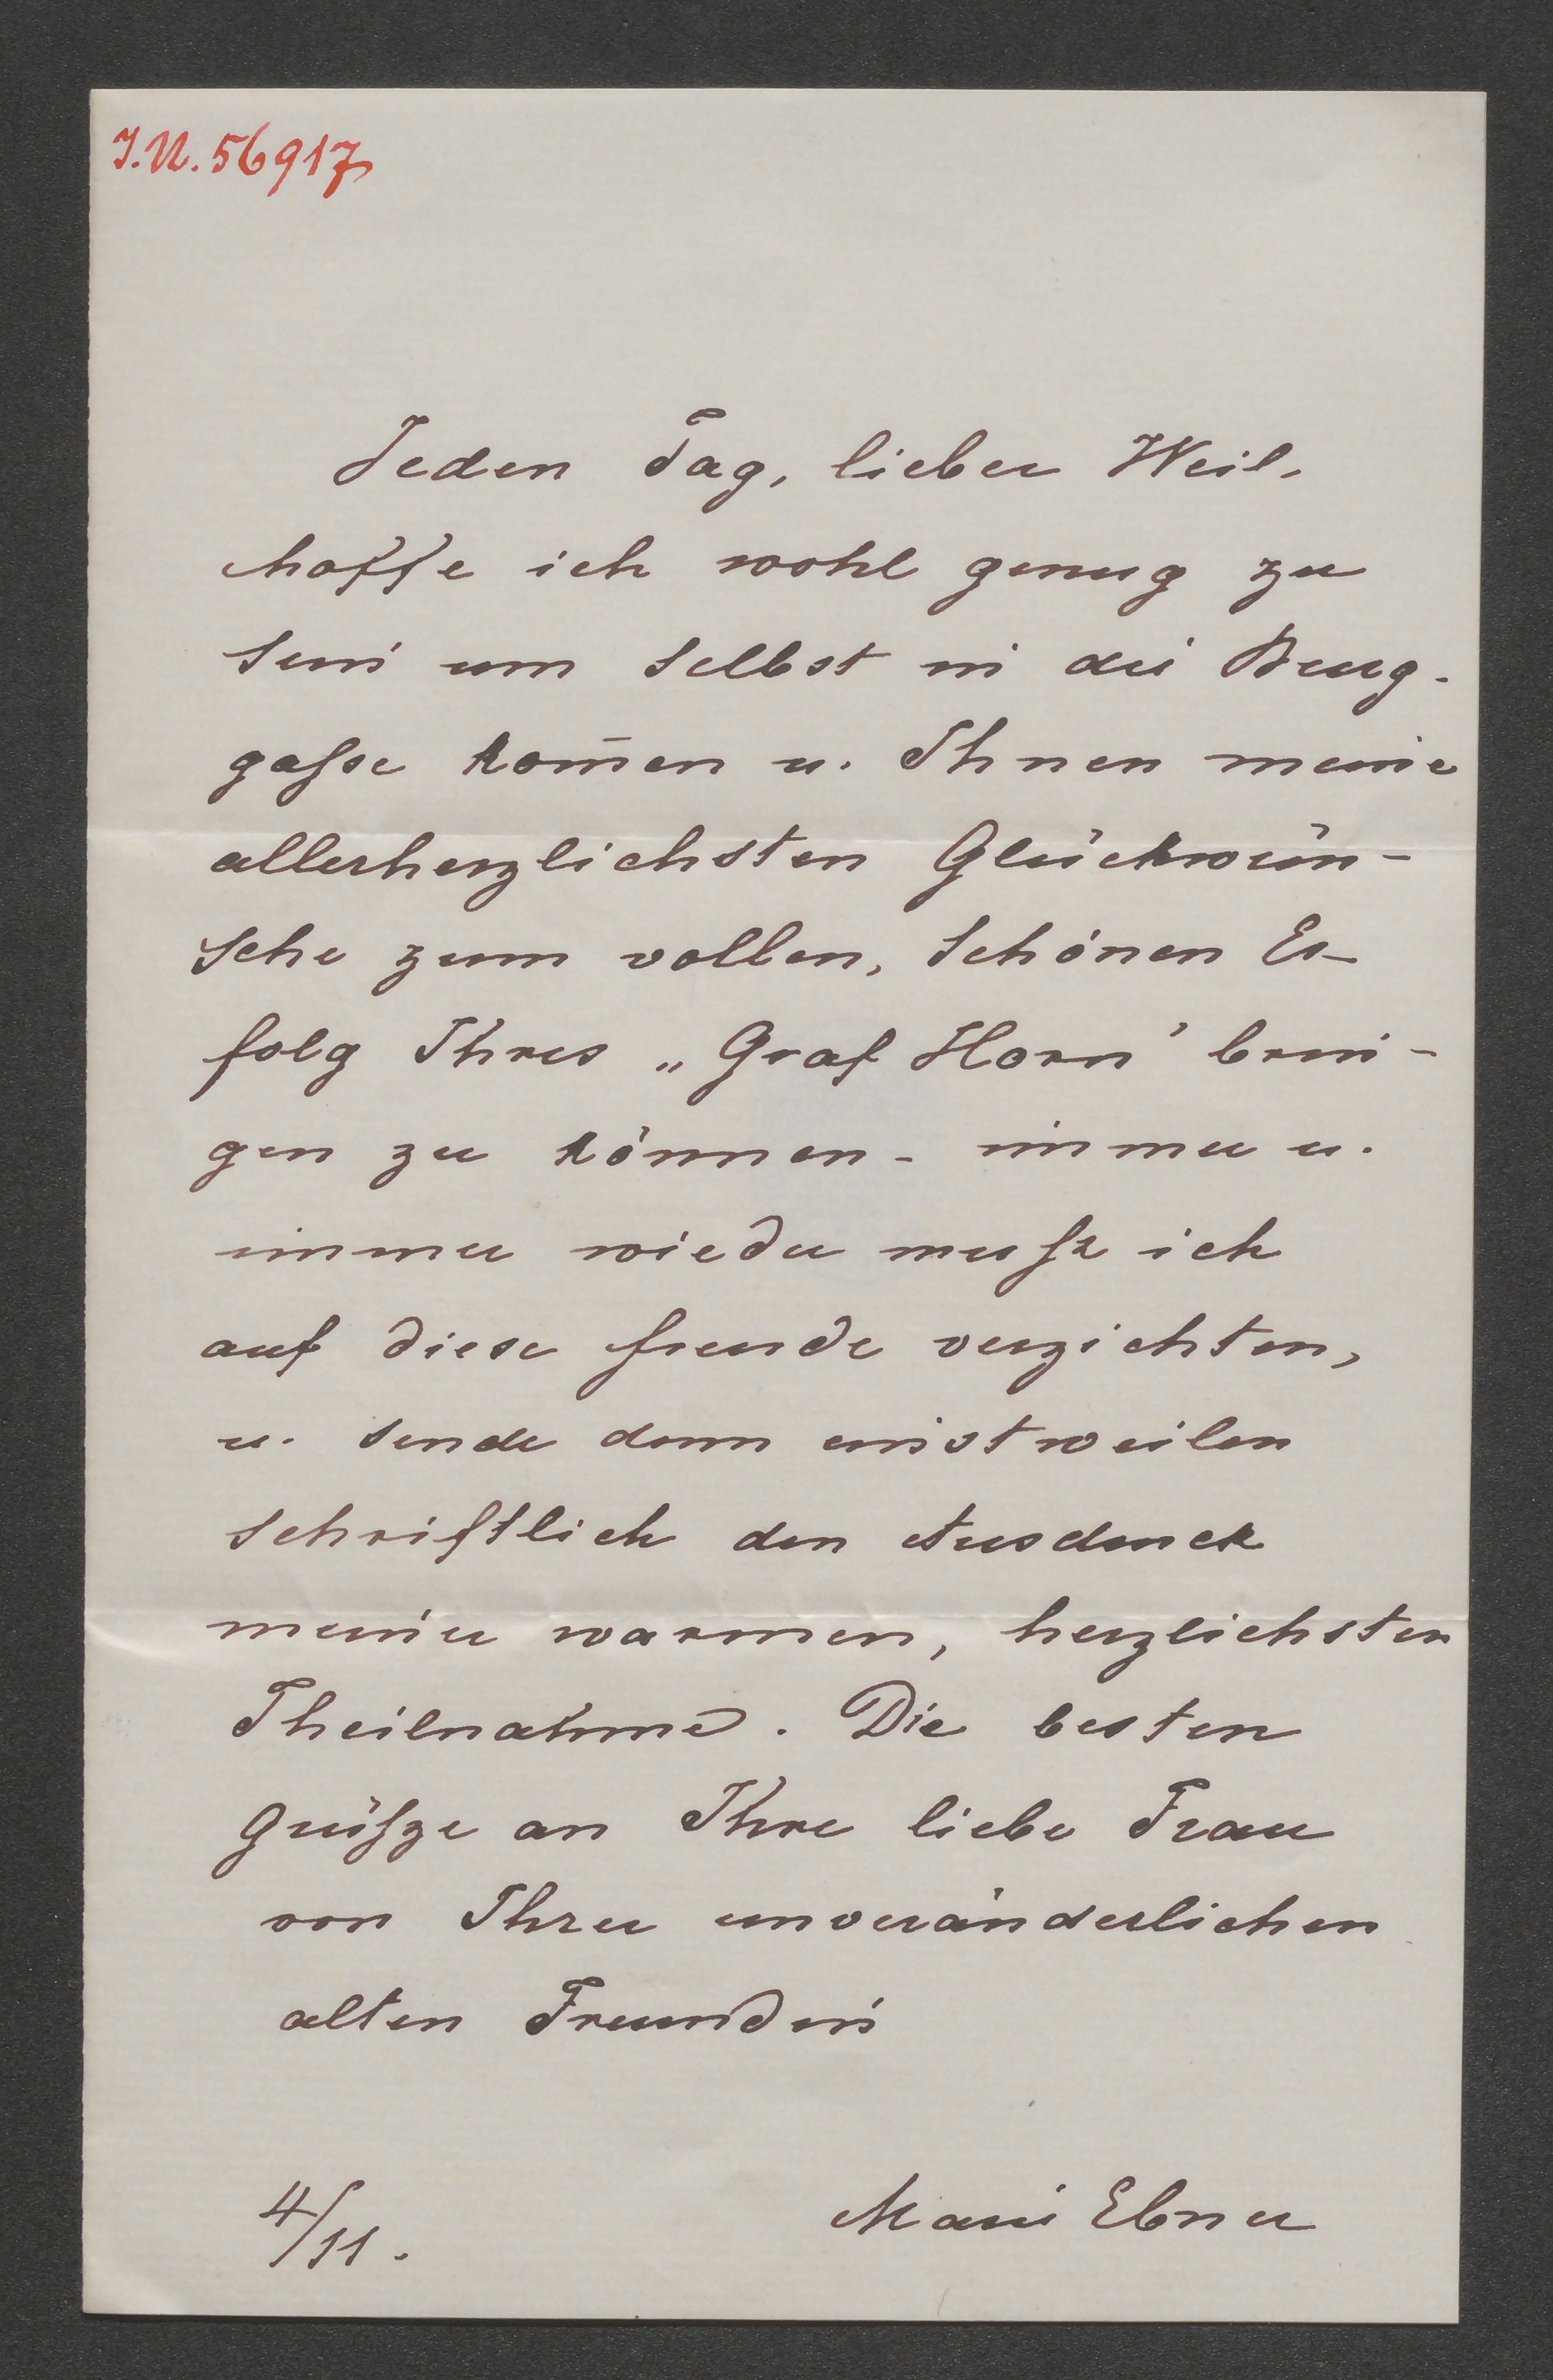 J.N. 56917
Jeden Tag, lieber Weil,
hoffe ich wohl genug zu
sein um selbst in die Burg-
gasse kom̄en u. Ihnen meine
allerherzlichsten Glückwün-
sche zum vollen, schönen Er-
folg Ihres „Graf Horn" brin-
gen zu können - immer u.
immer wieder muß ich
auf diese Freude verzichten,
u. sende denn einstweilen
schriftlich den Ausdruck
meiner warmen, herzlichsten
Theilnahme. Die besten
Grüße an Ihre liebe Frau
von Ihrer unveränderlichen
alten Freundin
4/11.
Marie Ebner